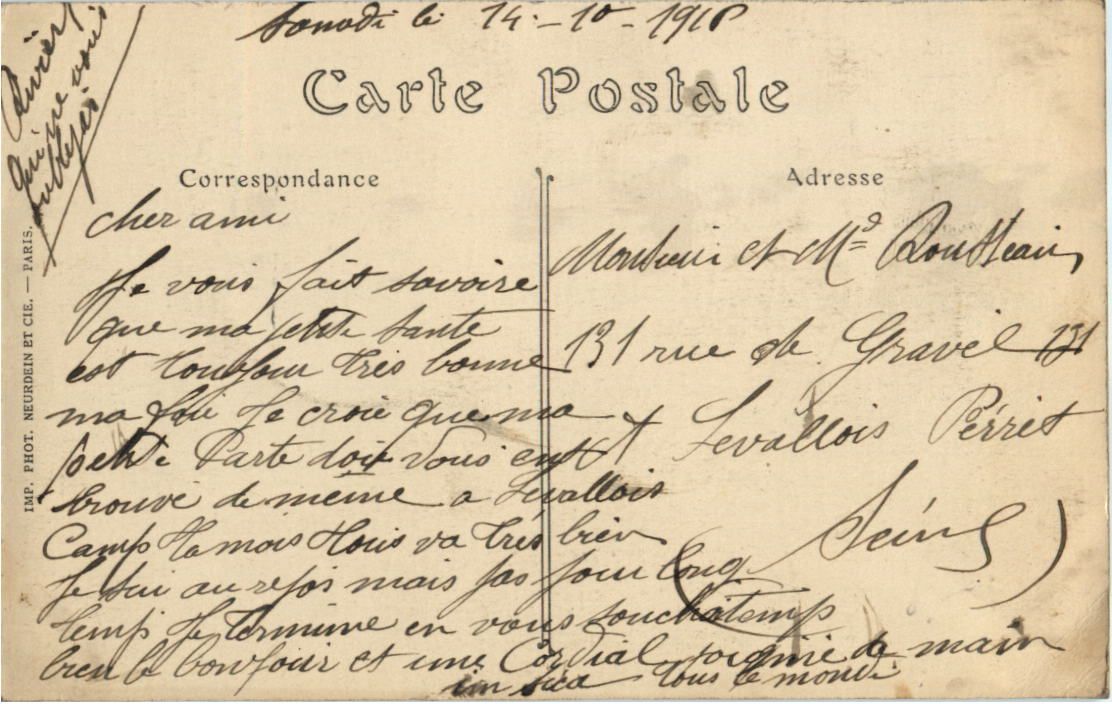 Samedi le 14-10-1916
Carte Postale
Correspondance
Adresse
cher ami
Je vous fait savoire
que ma petite sante
est toujour très bonne
ma foi Je croie que ma
petite Carte doit vous
trouvé de même a Levallois
Camp moi tous va très bien
Je sui au repos mais pas pour long
temp Je termine en vous souhaitemp
bien le bonjour et une Cordial poigné de main
tous le monde
Monsieur et Md Rousseau
131 rue de Gravel 131
A Levallois Pérret
Seine
qui ne vous
oublié pas
IMP. PHOT. NEURDEIN ET CIE. — PARIS.